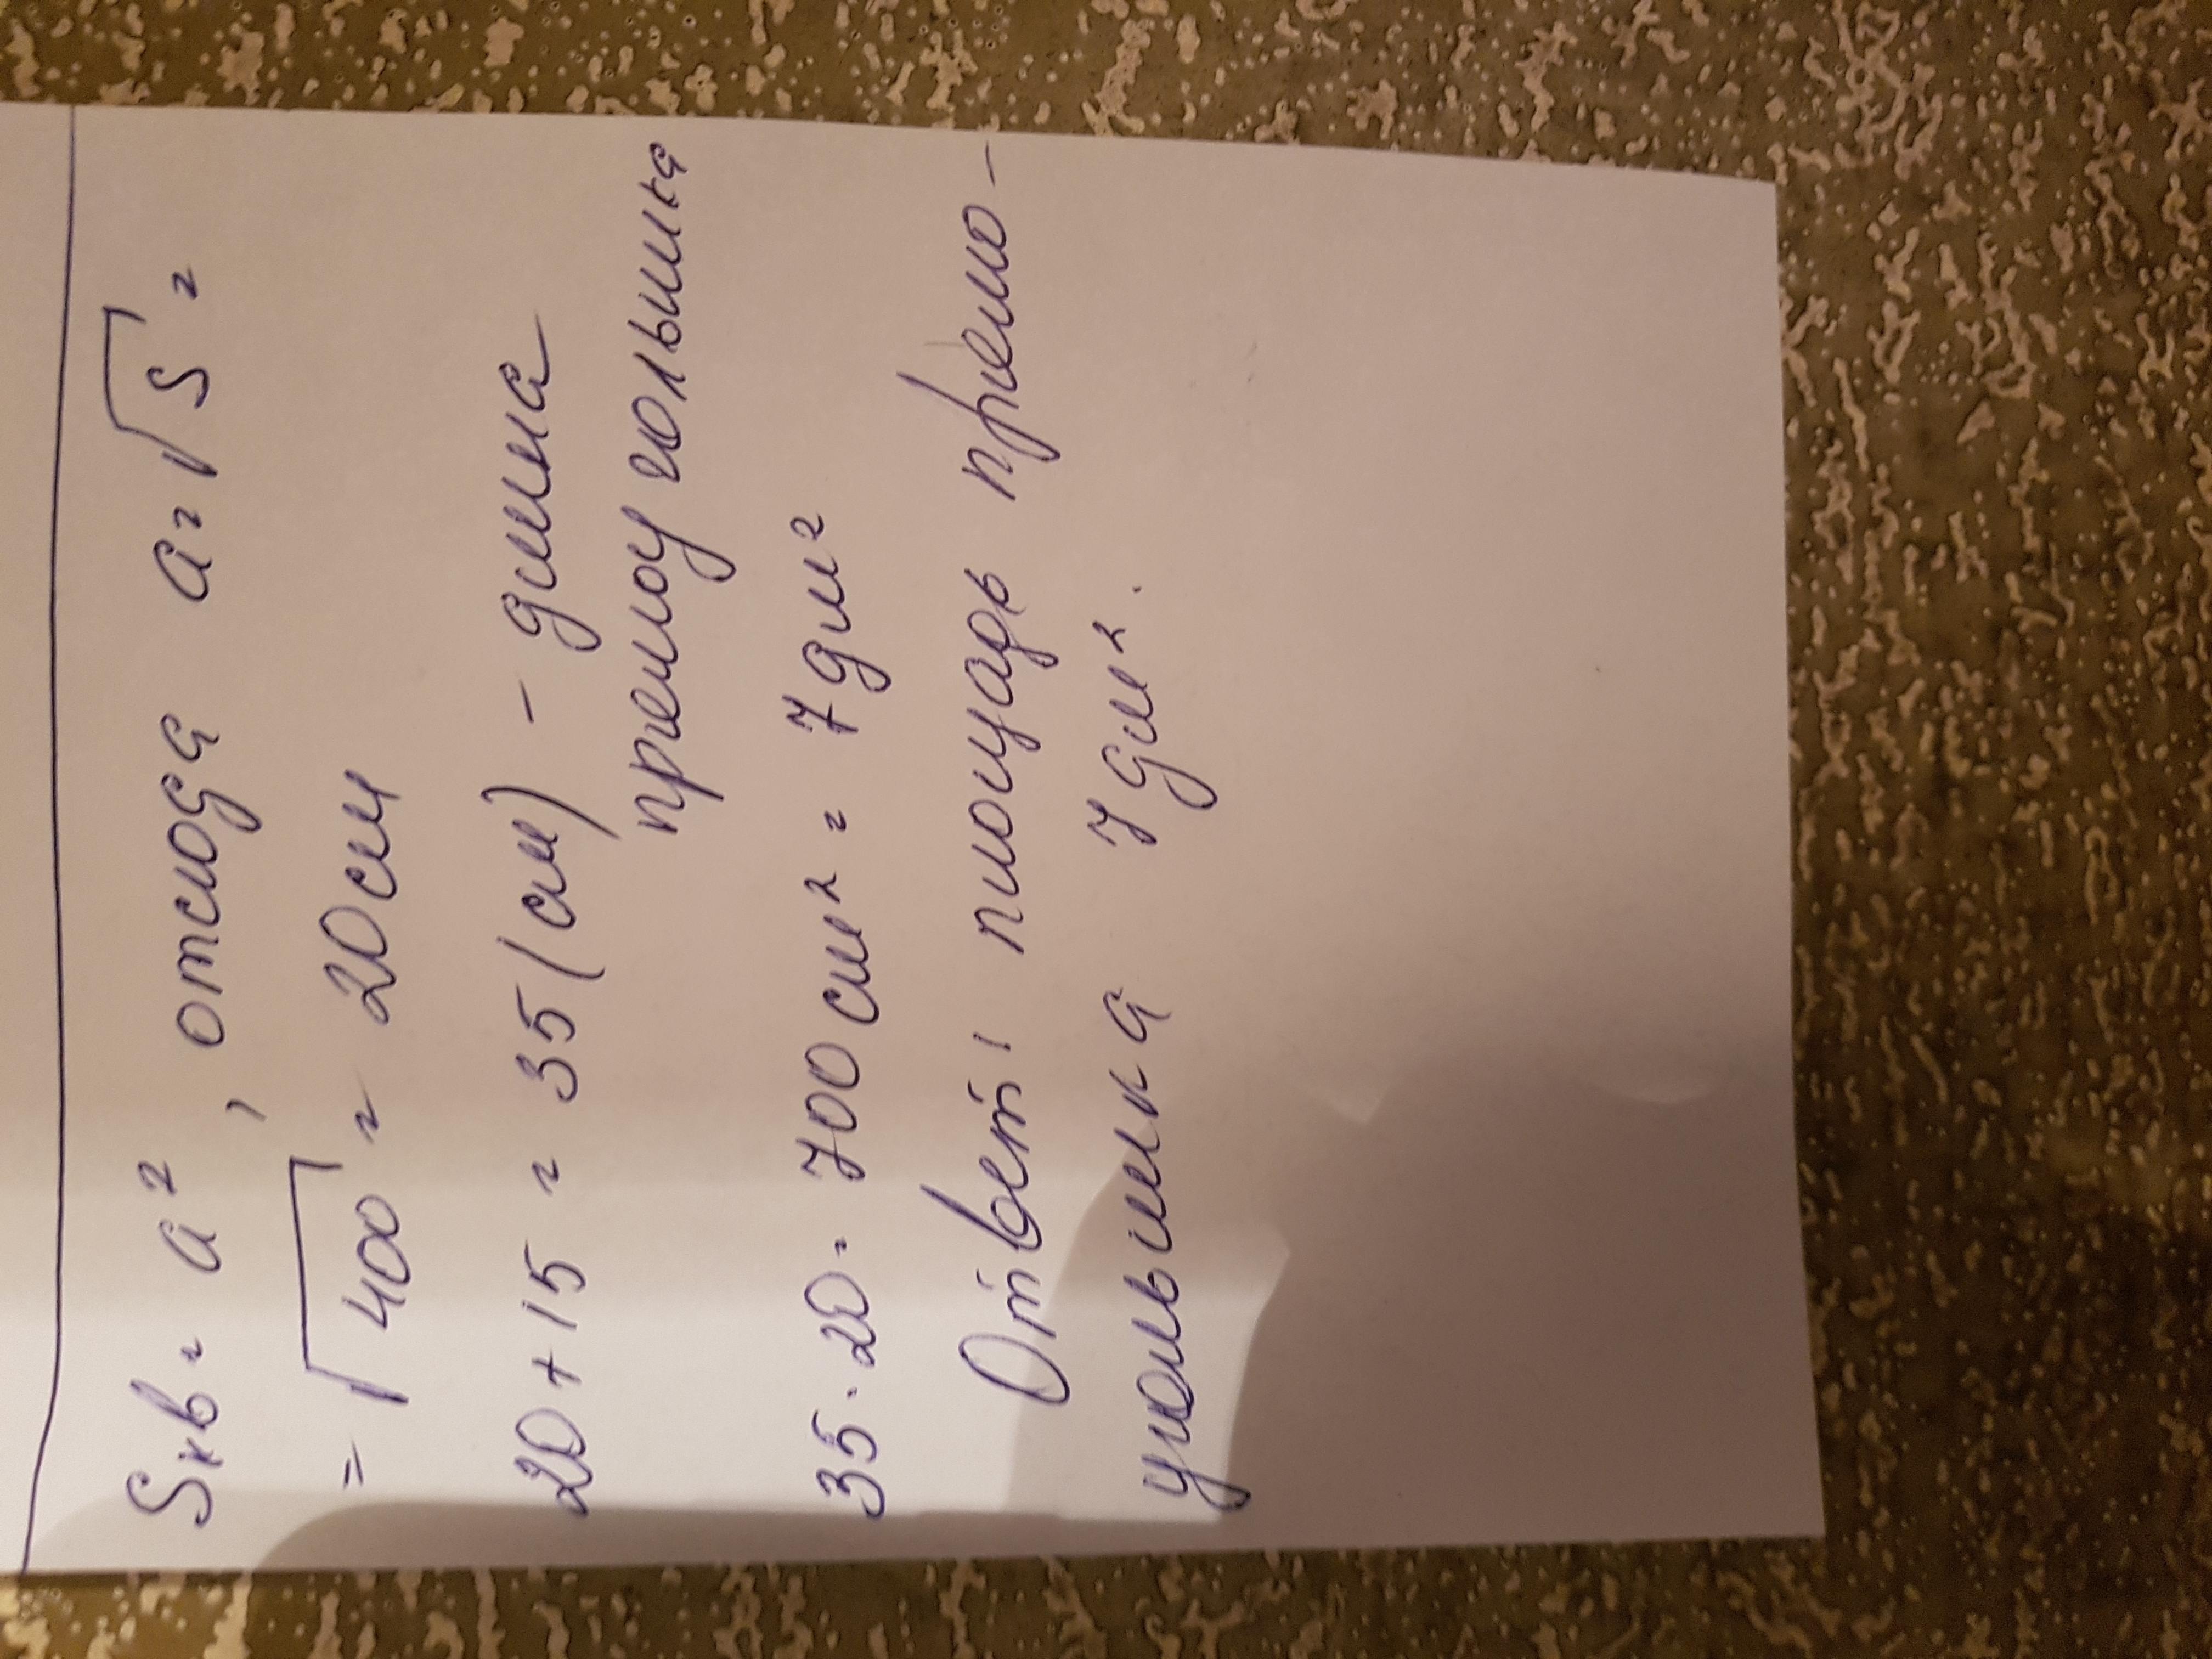 Sкв = a², отсюда a = √S =
= √400 = 20 см
20 + 15 = 35 (см) - длина
прямоугольника
35 · 20 = 700 см² = 7 дм²
Ответ: площадь прямо-
угольника 7 дм².